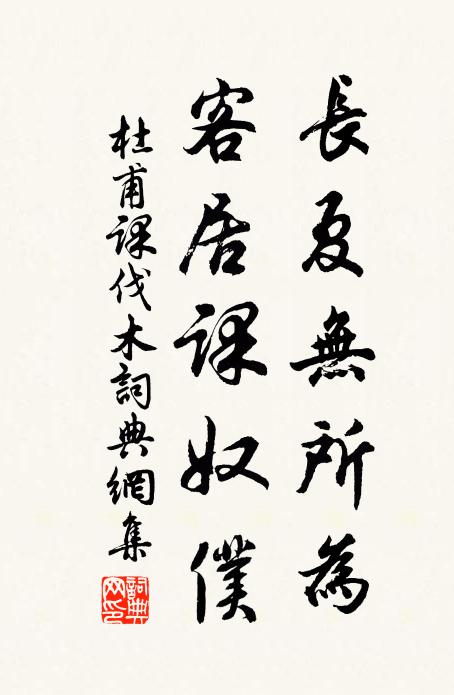 長夏無所為
客居課奴僕
杜甫課伐木詞典網集
詞典網印